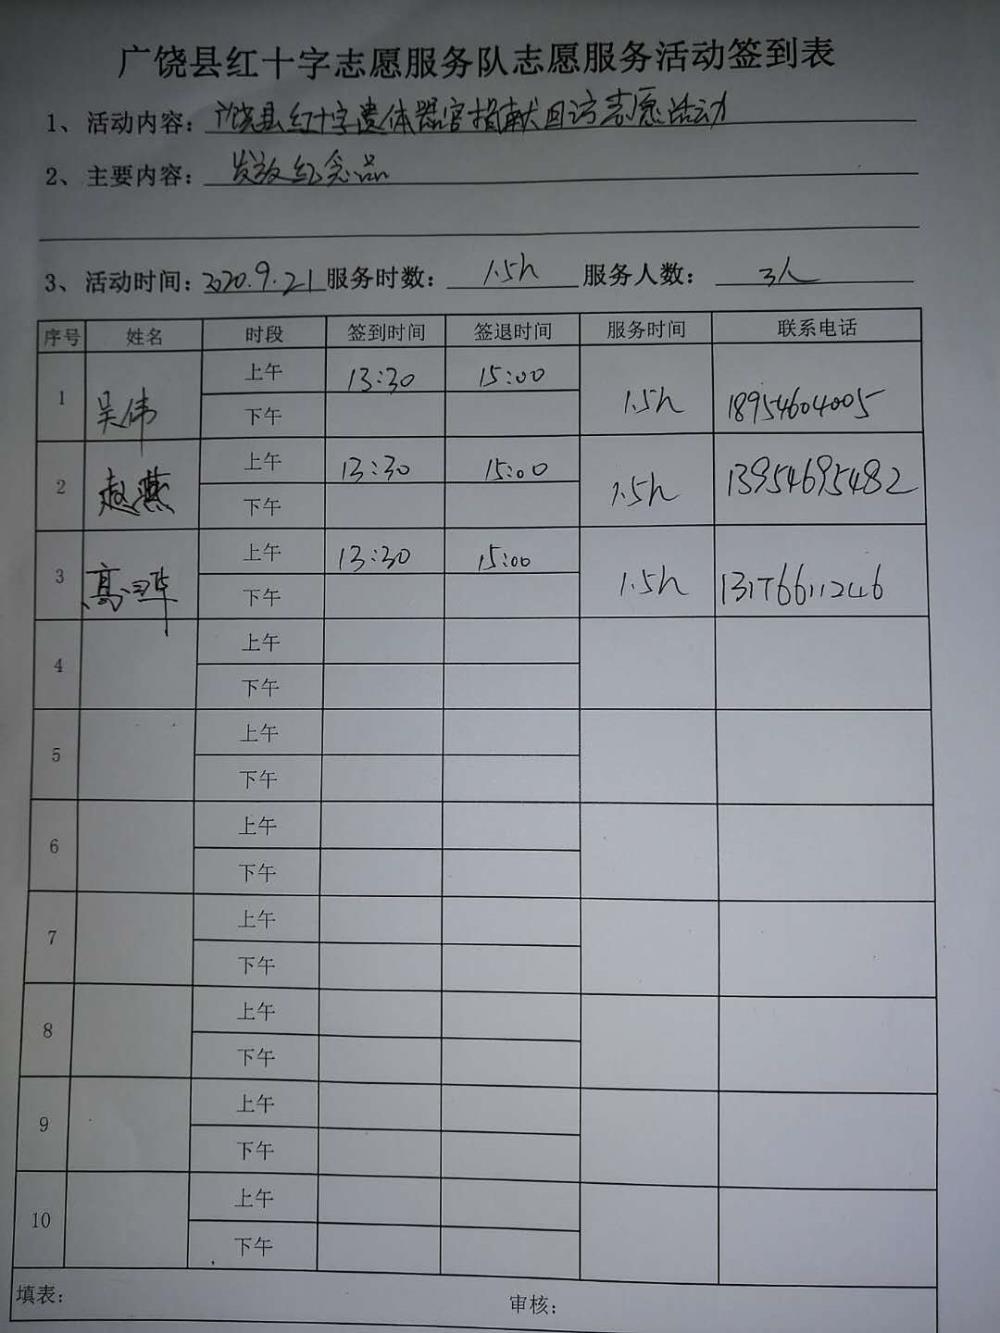 广饶县红十字志愿服务队志愿服务活动签到表
1、活动内容：广饶县红十字遗体器官捐献回访志愿活动
2、主要内容：发放纪念品
3、活动时间：2020.9.21 服务时数：1.5h 服务人数：3人
序号 姓名 时段 签到时间 签退时间 服务时间 联系电话
1 吴伟 上午 13:30 15:00 1.5h 18954604005
下午
2 赵燕 上午 13:30 15:00 1.5h 13954695482
下午
3 高 上午 13:30 15:00 1.5h 13176611246
下午
4 上午
下午
5 上午
下午
6 上午
下午
7 上午
下午
8 上午
下午
9 上午
下午
10 上午
下午
填表： 审核：